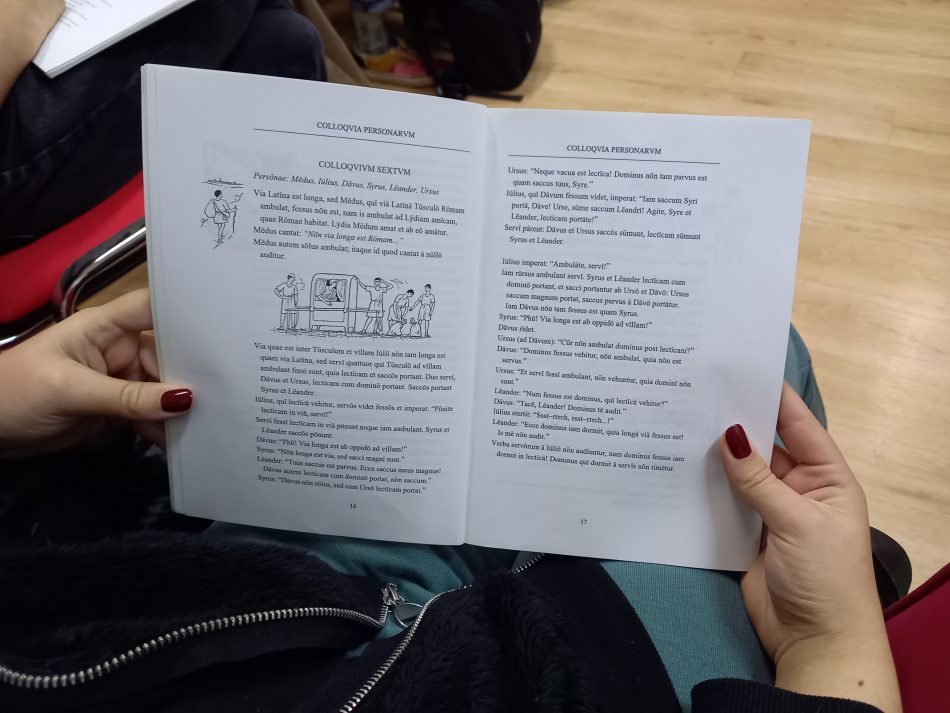 COLLOQVIA PERSONARVM
COLLOQVIVM SEXTVM
Persōnae: Mēdus, Iūlius, Dāvus, Syrus, Lēander, Ursus
Via Latīna est longa, sed Mēdus, quī viā Latīnā Tūsculō Rōmam
ambulat, fessus nōn est, nam is ambulat ad Lȳdiam amīcam,
quae Rōmae habitat. Lȳdia Mēdum amat et ab eō amātur.
Mēdus cantat: "Nōn via longa est Rōmam..."
Mēdus autem sōlus ambulat; itaque id quod cantat ā nūllō
audītur.
Via quae est inter Tūsculum et vīllam Iūliī nōn tam longa est
quam via Latīna, sed servī quattuor quī Tūsculō ad vīllam
ambulant fessī sunt, quia lectīcam et saccōs portant. Duo servī,
Dāvus et Ursus, lectīcam cum dominō portant. Saccōs portant
Syrus et Lēander.
Iūlius, quī lectīcā vehitur, servōs videt fessōs et imperat: "Pōnite
lectīcam in viā, servī!"
Servī fessī lectīcam in viā pōnunt neque iam ambulant. Syrus et
Lēander saccōs pōnunt.
Dāvus: "Phū! Via longa est ab oppidō ad vīllam!"
Syrus: "Nōn longa est via, sed saccī magnī sunt."
Lēander: "Tuus saccus est parvus. Ecce saccus meus magnus!
Dāvus autem lectīcam cum dominō portat, nōn saccum."
Syrus: "Dāvus nōn sōlus, sed cum Ursō lectīcam portat."
16
COLLOQVIA PERSONARVM
Ursus: "Neque vacua est lectīca! Dominus nōn tam parvus est
quam saccus tuus, Syre."
Iūlius, quī Dāvum fessum videt, imperat: "Iam saccum Syrī
portā, Dāve! Urse, sūme saccum Lēandrī! Agite, Syre et
Lēander, lectīcam portāte!"
Servī pārent: Dāvus et Ursus saccōs sūmunt, lectīcam sūmunt
Syrus et Lēander.
Iūlius imperat: "Ambulāte, servī!"
Iam rūrsus ambulant servī. Syrus et Lēander lectīcam cum
dominō portant, et saccī portantur ab Ursō et Dāvō: Ursus
saccum magnum portat, saccus parvus ā Dāvō portātur.
Iam Dāvus nōn tam fessus est quam Syrus.
Syrus: "Phū! Via longa est ab oppidō ad vīllam!"
Dāvus rīdet.
Ursus (ad Dāvum): "Cūr nōn ambulat dominus post lectīcam?"
Dāvus: "Dominus fessus vehitur, nōn ambulat, quia nōn est
servus."
Ursus: "Et servī fessī ambulant, nōn vehuntur, quia dominī nōn
sunt."
Lēander: "Num fessus est dominus, quī lectīcā vehitur?"
Dāvus: "Tacē, Lēander! Dominus tē audit."
Iūlius stertit: "Ssst–rrrch, ssst–rrrch...!"
Lēander: "Ecce dominus iam dormit, quia longā viā fessus est!
Is mē nōn audit."
Verba servōrum ā Iūliō nōn audiuntur, nam dominus fessus iam
dormit in lectīcā! Dominus quī dormit ā servīs nōn timētur.
17